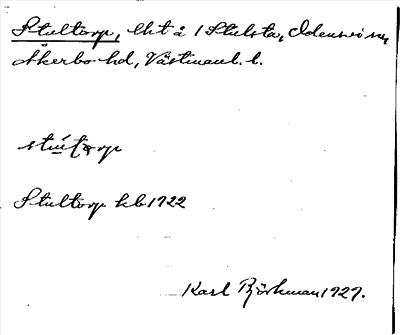 Stultorp, lht å 1 Stulsta, Odensvi sn,
Åkerbo hd, Västmanl. l.
Stultorp kb 1722
Karl Björkman 1927.